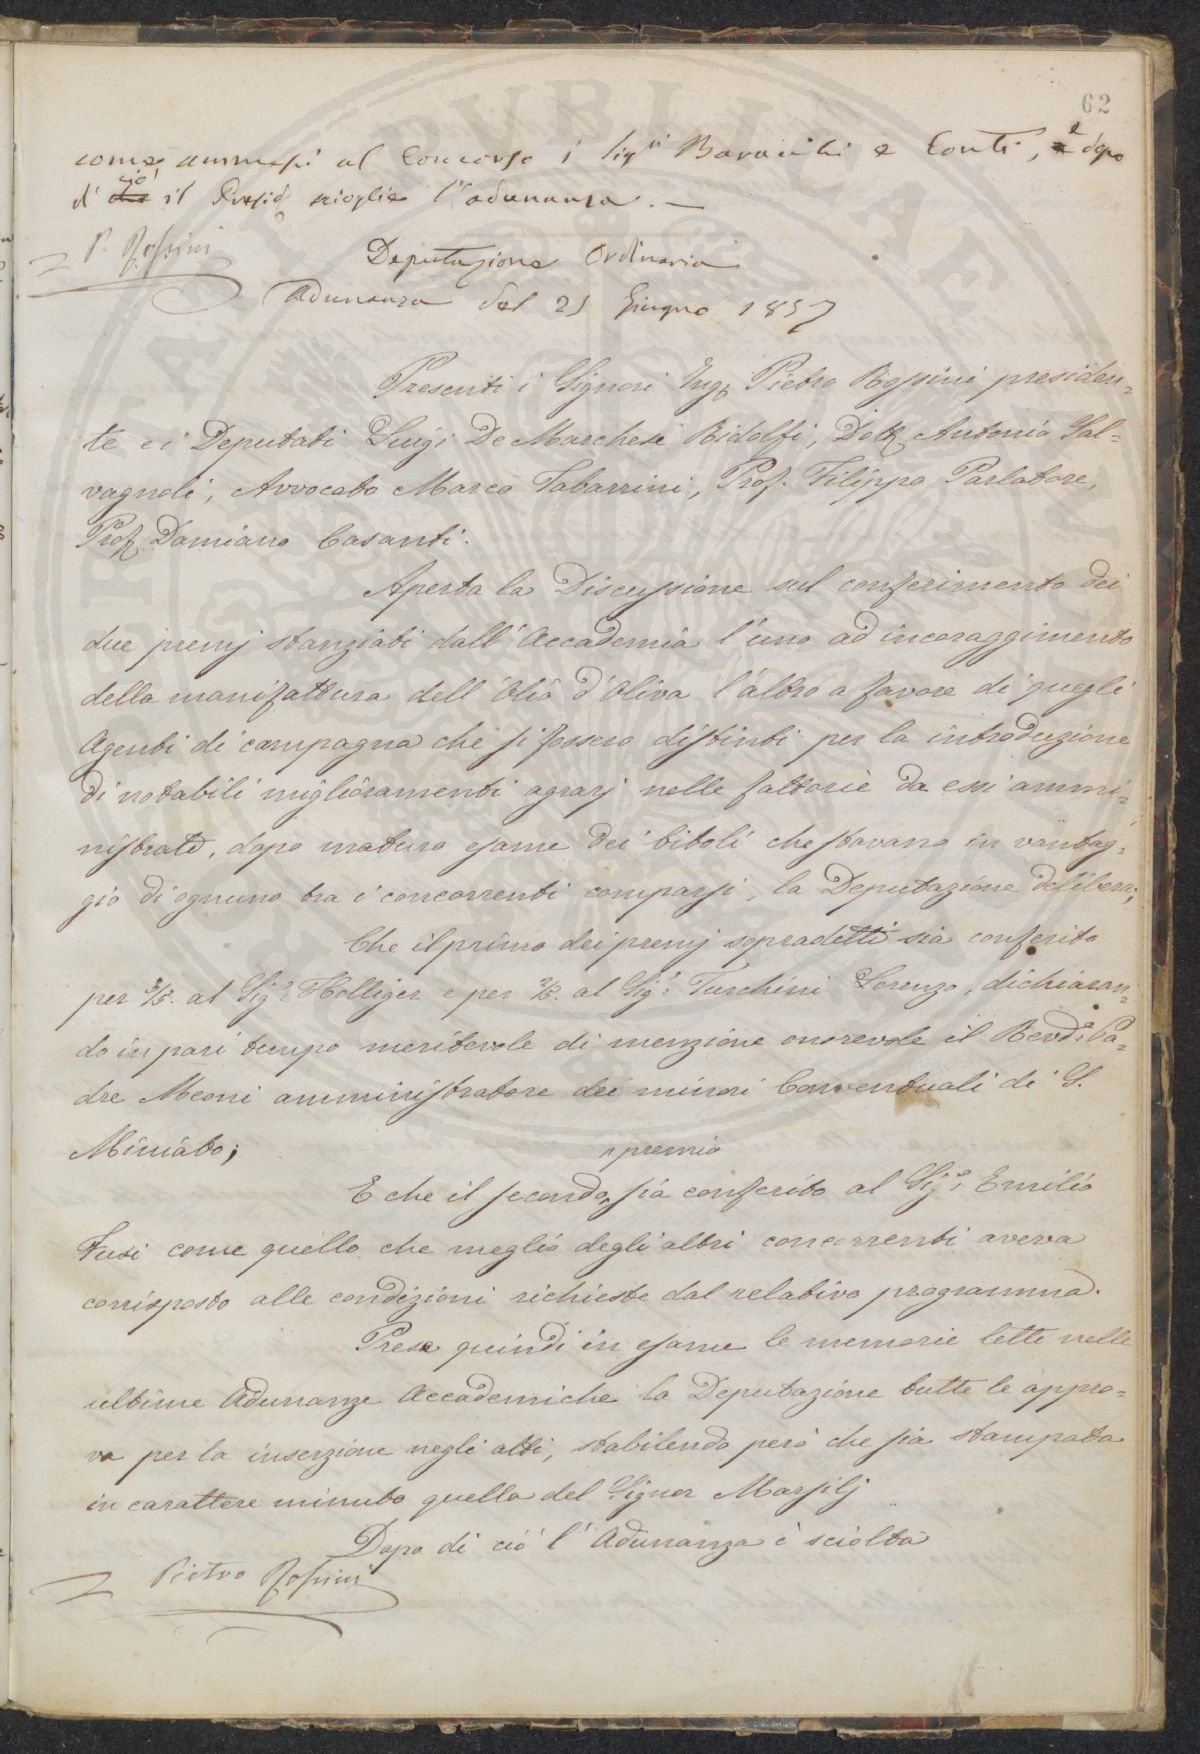 62
come ammessi al Concorso i Sigri e Conti, e dopo
di ciò il Presid. scioglie l'adunanza. —
P. Rossini
Deputazione Ordinaria
Adunanza del 21 Giugno 1857
Presenti i Signori Ing. Pietro Rossini presiden=
te e i Deputati Luigi De Marchesi Ridolfi, Dott. Antonio Sal=
vagnoli, Avvocato Marco Tabarrini, Prof. Filippo Parlatore,
Prof. Damiano Casanti.
Aperta la Discussione sul conferimento dei
due premj stanziati dall'Accademia l'uno ad incoraggimento
della manifattura dell'Olio d'Oliva l'altro a favore di quegli
Agenti di campagna che si fossero distinti per la introduzione
di notabili miglioramenti agrarj nelle fattorie da essi ammi=
nistrate, dopo maturo esame dei titoli che stavano in vantag=
gio di ognuno tra i concorrenti comparsi, la Deputazione delibera;
Che il primo dei premj sopradetti sia conferito
per 3/5. al Sigr. Holliger e per 2/5. al Sigr. Turchini Lorenzo, dichiaran=
do in pari tempo meritevole di menzione onorevole il Revdo. Pa=
dre Meoni amministratore dei minori Conventuali di S.
Miniato;
E che il secondo premio sia conferito al Sigr. Emilio
Fusi come quello che meglio degli altri concorrenti aveva
corrisposto alle condizioni richieste dal relativo programma.
Prese quindi in esame le memorie lette nelle
ultime Adunanze Accademiche la Deputazione tutte le appro=
va per la inserzione negli atti, stabilendo però che sia stampata
in carattere minuto quella del Signor Marsilj
Dopo di ciò l'Adunanza è sciolta
Pietro Rossini